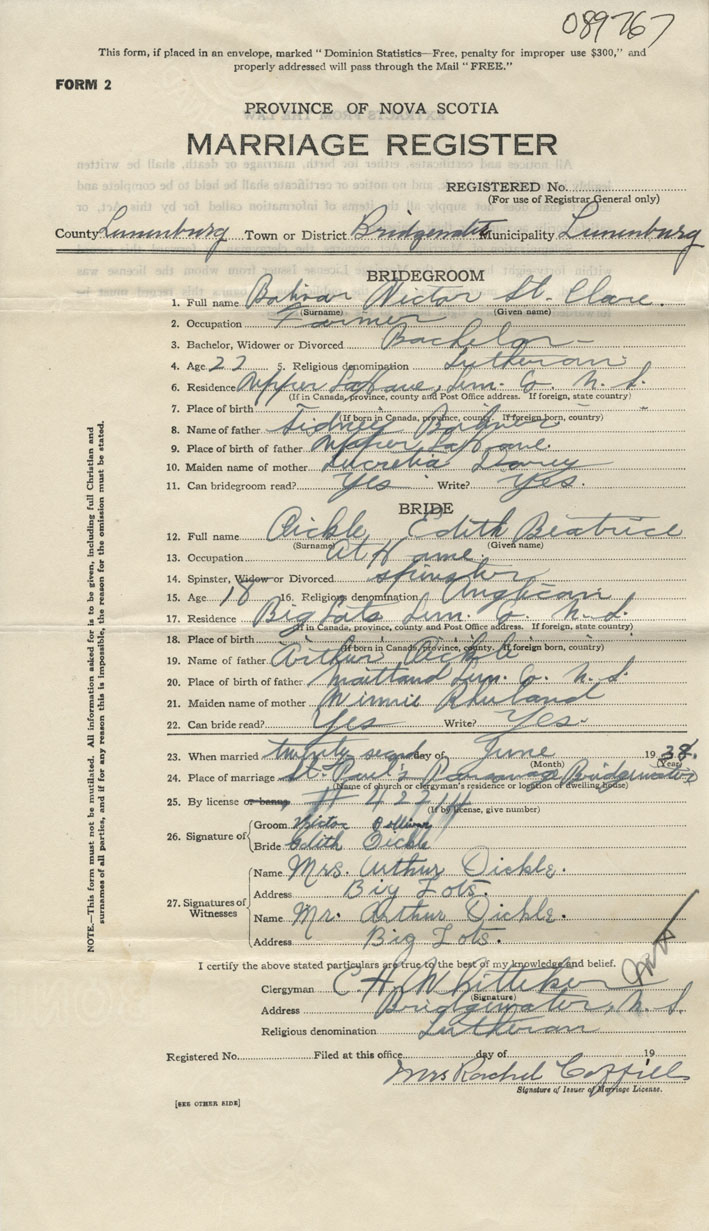 089767
This form, if placed in an envelope, marked "Dominion Statistics—Free, penalty for improper use $300," and
properly addressed will pass through the Mail "FREE."
FORM 2
PROVINCE OF NOVA SCOTIA
MARRIAGE REGISTER
REGISTERED No.
(For use of Registrar General only)
County Lunenburg Town or District Bridgewater Municipality Lunenburg
BRIDEGROOM
1. Full name Bolivar Victor St. Clare.
(Surname) (Given name)
2. Occupation Farmer
3. Bachelor, Widower or Divorced Bachelor
4. Age 22 5. Religious denomination Lutheran
6. Residence Upper LaHave, Lun. Co. N. S.
(If in Canada, province, county and Post Office address. If foreign, state country)
7. Place of birth
(If born in Canada, province, county. If foreign born, country)
8. Name of father Sidney Bolivar
9. Place of birth of father Upper LaHave.
10. Maiden name of mother Lucretia
11. Can bridegroom read? Yes Write? Yes.
BRIDE
12. Full name Oickle Edith Beatrice
(Surname) (Given name)
13. Occupation At Home.
14. Spinster, Widow or Divorced spinster
15. Age 18 16. Religious denomination Anglican
17. Residence Big Lots Lun. Co. N. S.
(If in Canada, province, county and Post Office address. If foreign, state country)
18. Place of birth
(If born in Canada, province, county. If foreign born, country)
19. Name of father Arthur Oickle
20. Place of birth of father Maitland Lun. Co. N. S.
21. Maiden name of mother Winnie Rhuland
22. Can bride read? Yes Write? Yes.
23. When married twenty second day of June 1938.
(Month) (Year)
24. Place of marriage St. Paul's Parsonage Bridgewater
(Name of church or clergyman's residence or location of dwelling house)
25. By license or banns #
(If by license, give number)
26. Signature of
Groom Victor Bolivar
Bride Edith Oickle
27. Signatures of Witnesses
Name Mrs. Arthur Oickle.
Address Big Lots.
Name Mr. Arthur Oickle.
Address Big Lots.
I certify the above stated particulars are true to the best of my knowledge and belief.
Clergyman C. H. Whitteker
(Signature)
Address Bridgewater, N. S.
Religious denomination Lutheran
Registered No. Filed at this office day of 19
Mrs Rachel
Signature of Issuer of Marriage License.
[SEE OTHER SIDE]
NOTE.—This form must not be mutilated. All information asked for is to be given, including full Christian and
surnames of all parties, and if for any reason this is impossible, the reason for the omission must be stated.